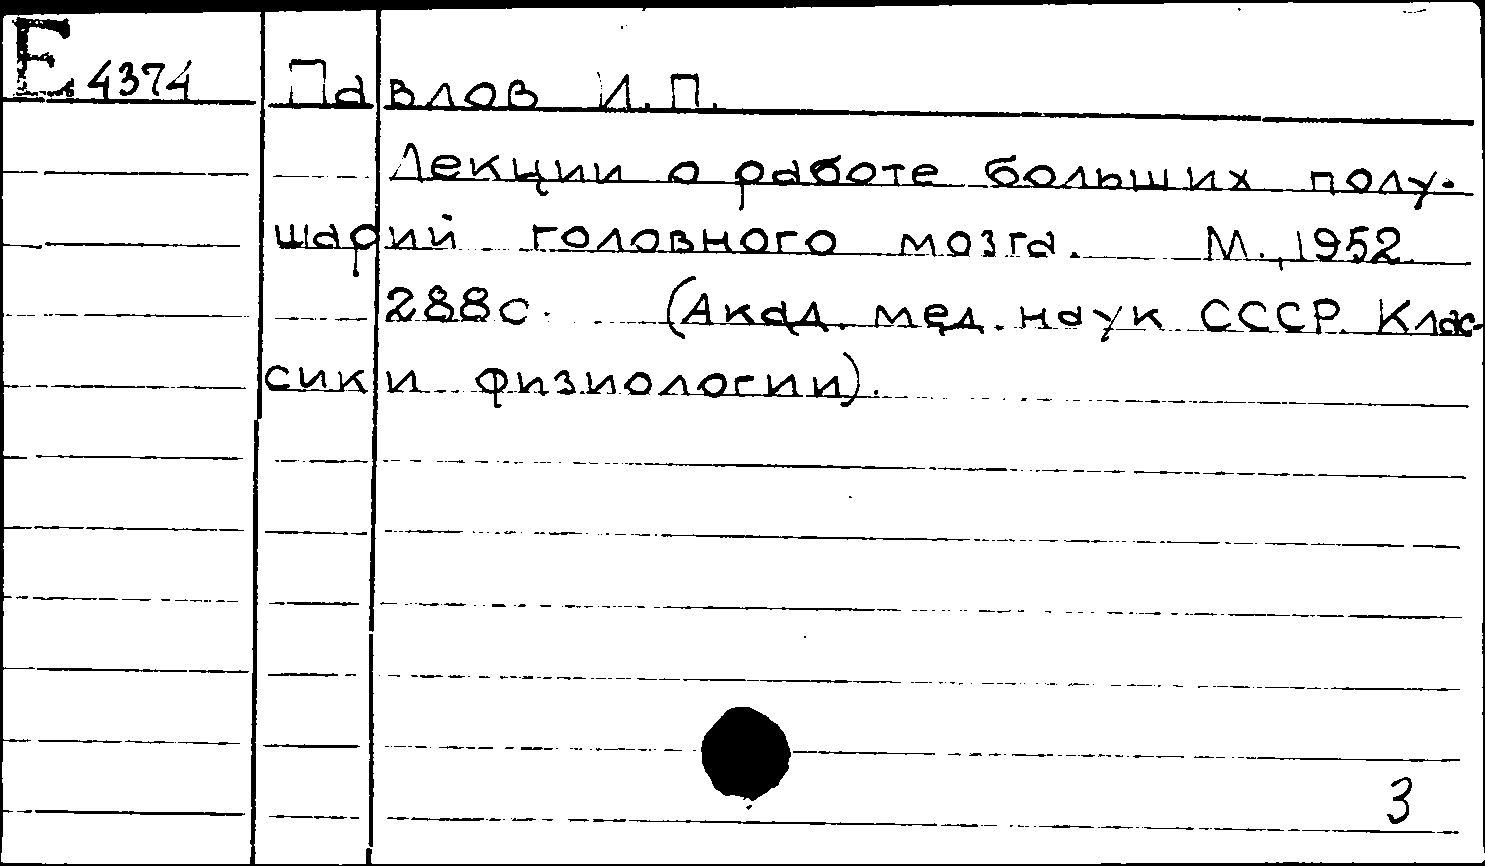 Е 4374 Павлов И.П.
Лекции о работе больших полу-
шарий головного мозга. М., 1952.
288с. (Акад. мед. наук СССР. Клас-
сики физиологии).
3